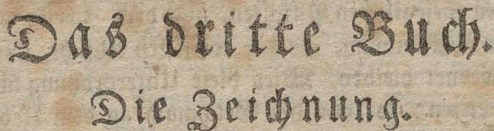 Das dritte Buch.
Die Zeichnung.